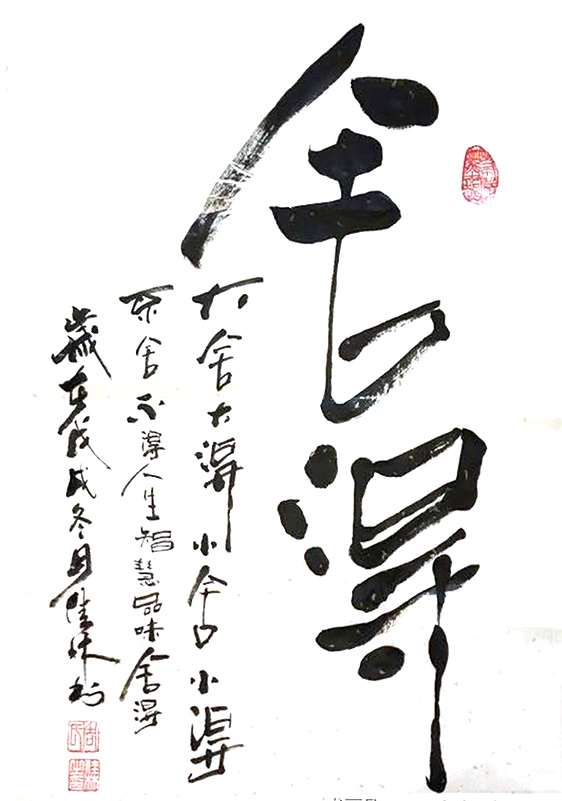 舍得
大舍大得小舍小得
不舍不得人生智慧品味舍得
歲在戊戌冬月